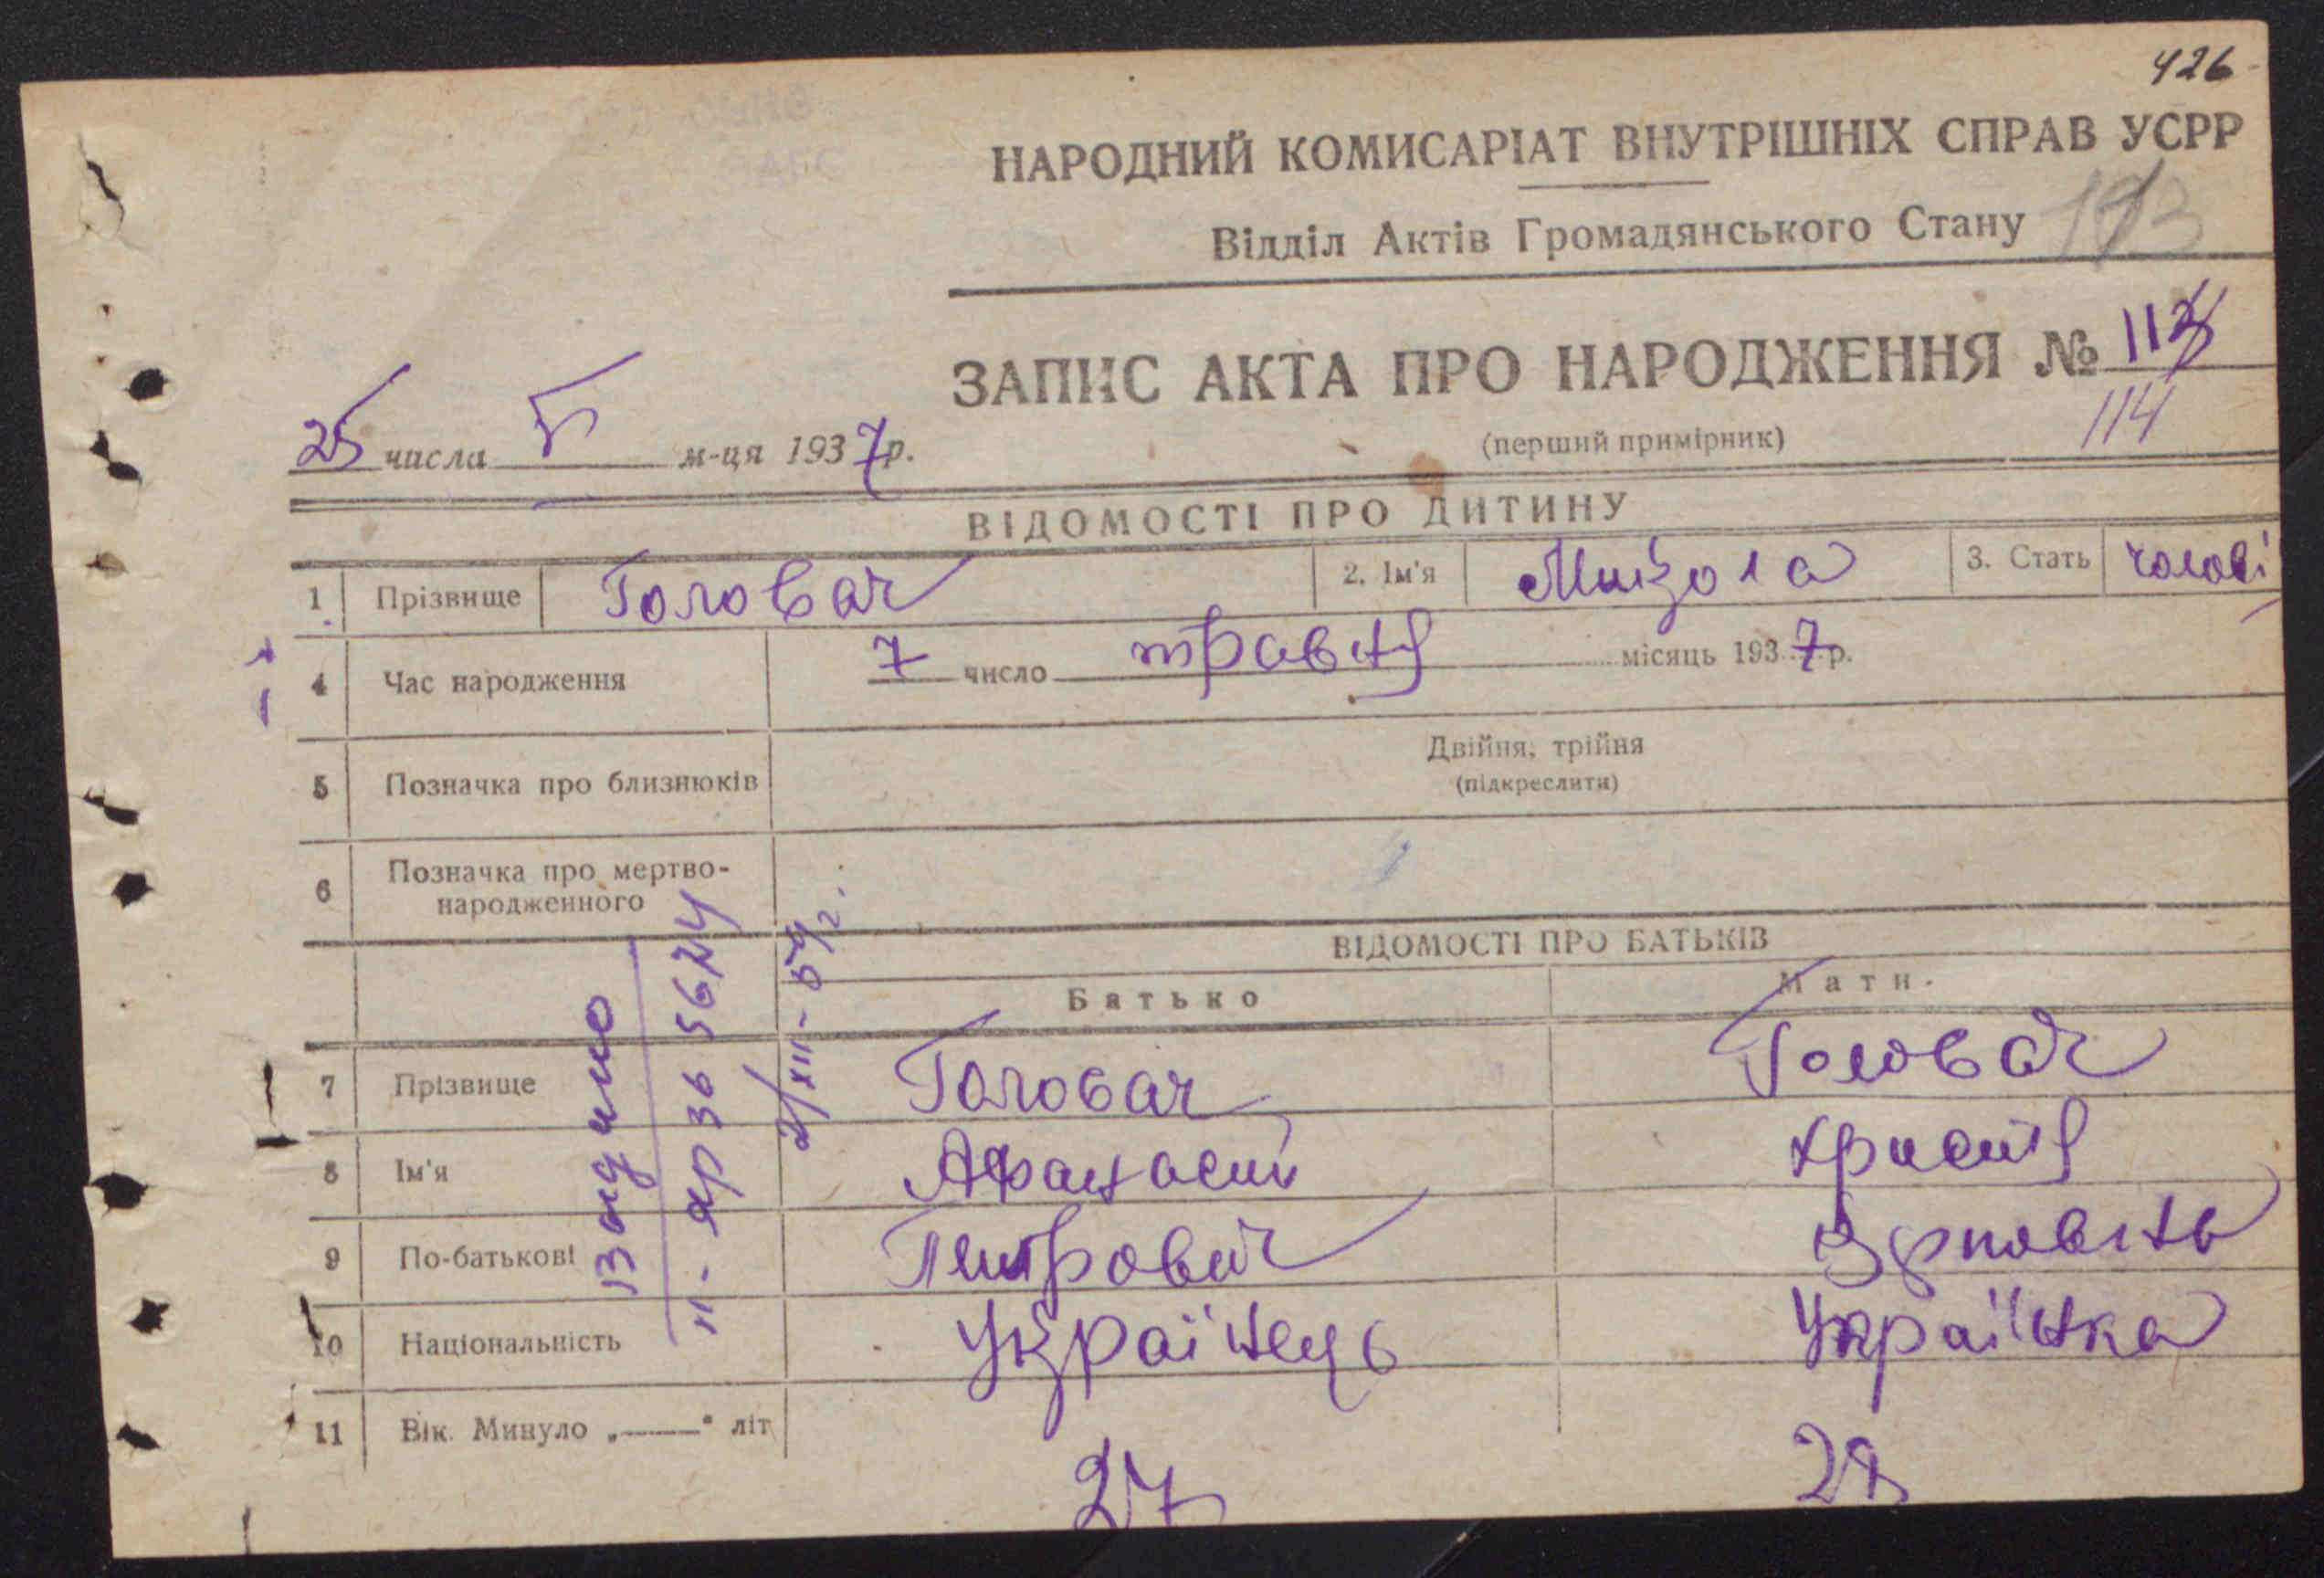 426
НАРОДНИЙ КОМИСАРІАТ ВНУТРІШНІХ СПРАВ УСРР
Відділ Актів Громадянського Стану
ЗАПИС АКТА ПРО НАРОДЖЕННЯ №
114
25 числа V м-ця 1937р.
(перший примірник)
ВІДОМОСТІ ПРО ДИТИНУ
1 Прізвище Головач 2. Ім'я Микола 3. Стать чолові
4 Час народження 7 число травня місяць 1937р.
5 Позначка про близнюків Двійня, трійня
(підкреслити)
6 Позначка про мертво-
народженного
ВІДОМОСТІ ПРО БАТЬКІВ
Батько Мати.
7 Прізвище Головач Головач
8 Ім'я Афанасий Христя
9 По-батькові Петрович
10 Національність Українець Українка
11 Вік. Минуло „——“ літ 27